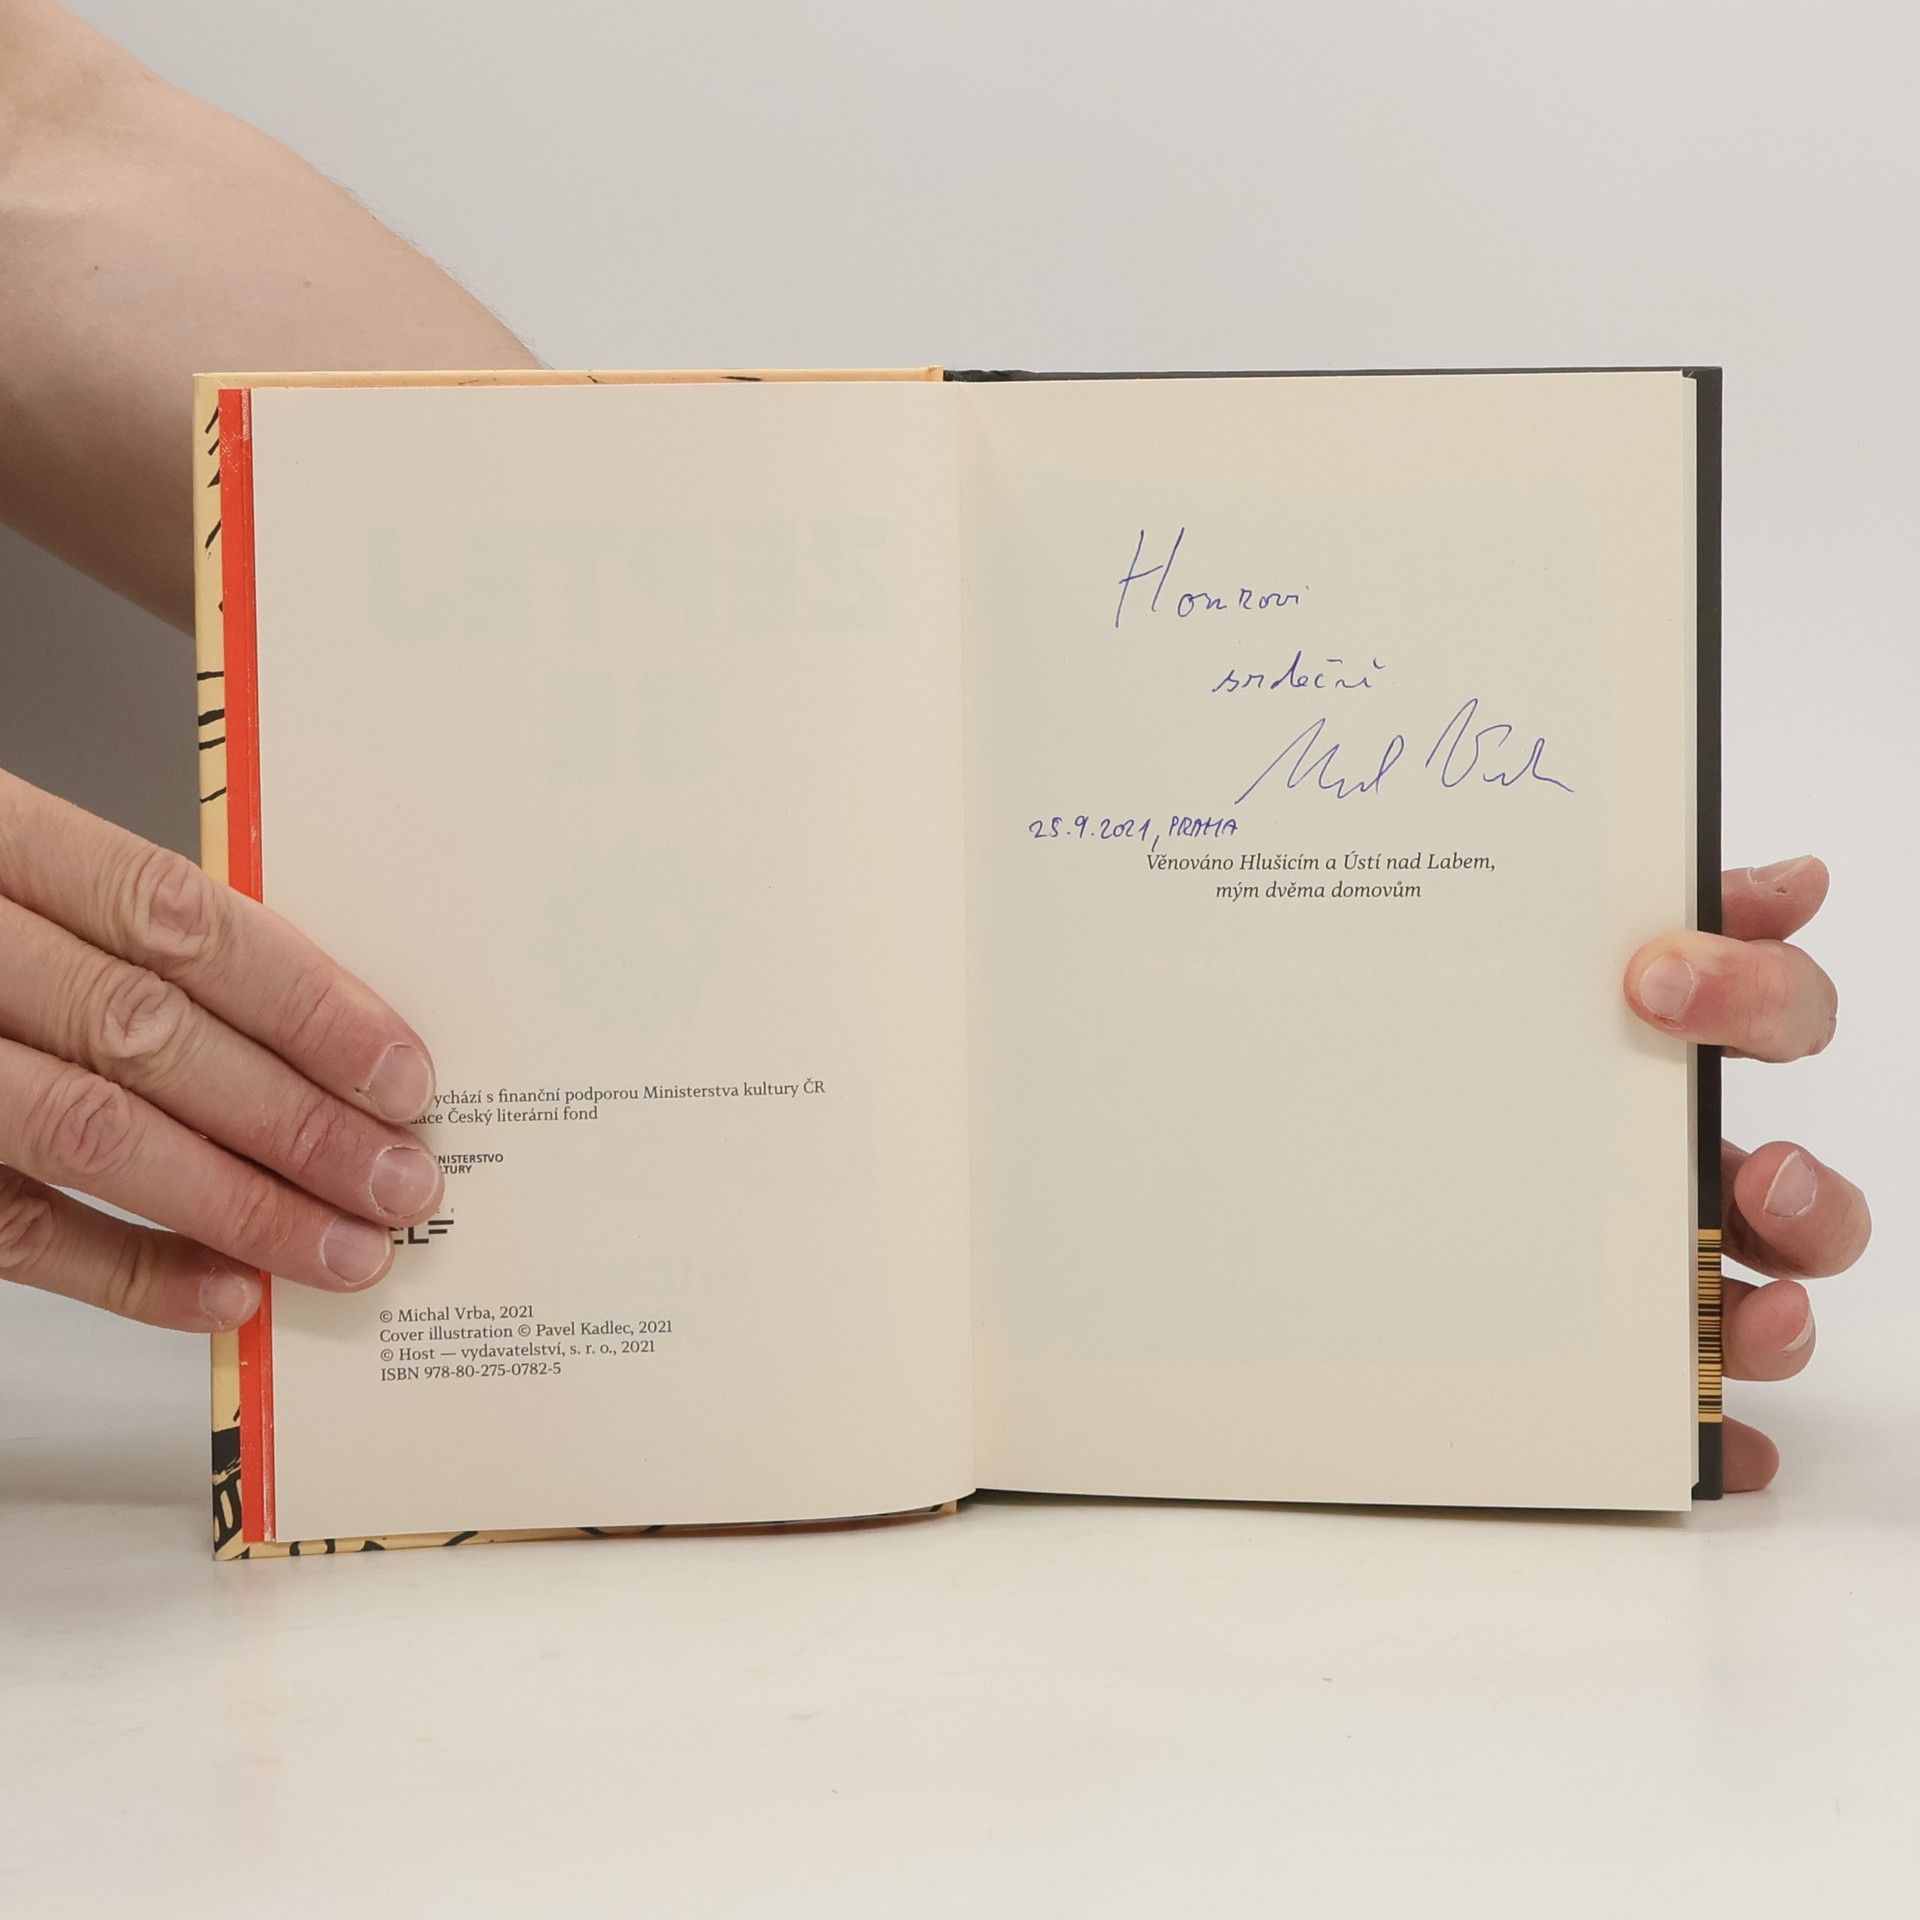 ychází s finanční podporou Ministerstva kultury ČR
dace Český literární fond
NISTERSTVO
TURY
© Michal Vrba, 2021
Cover illustration © Pavel Kadlec, 2021
© Host — vydavatelství, s. r. o., 2021
ISBN 978-80-275-0782-5
srdečně
25.9.2021, PRAHA
Věnováno Hlušicím a Ústí nad Labem,
mým dvěma domovům